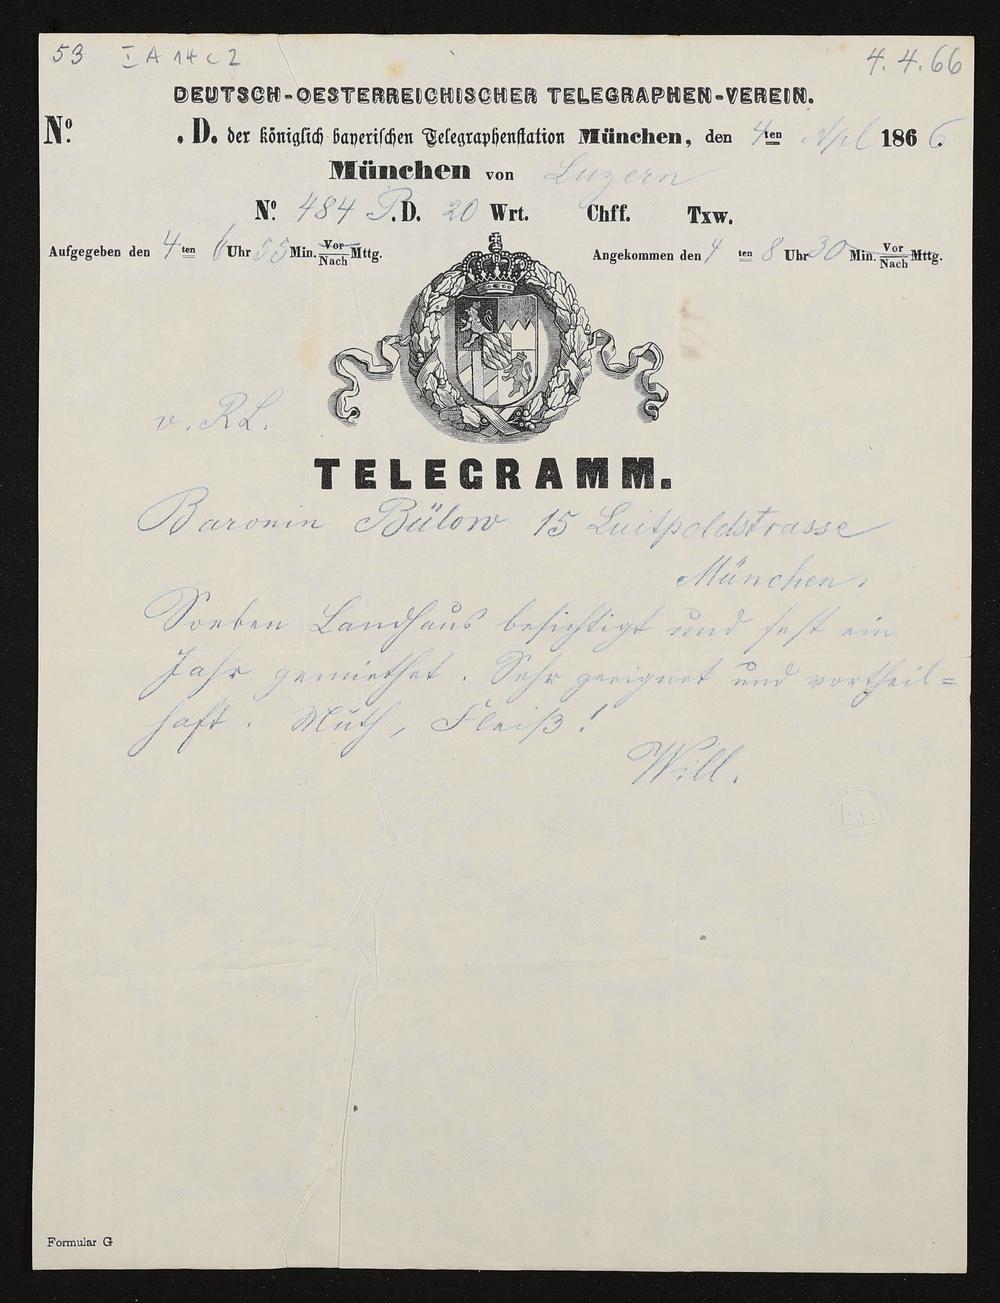 53 I A 14 c 2 4. 4. 66
DEUTSCH-OESTERREICHISCHER TELEGRAPHEN-VEREIN.
Nº . D. der königlich bayerischen Telegraphenstation München, den 4ten Apl 1866.
München von Luzern
Nº 484 P.D. 20 Wrt. Chff. Txw.
Aufgegeben den 4ten 6 Uhr 55 Min. Vor/Nach Mttg. Angekommen den 4ten 8 Uhr 30 Min. Vor/Nach Mttg.
v. RL.
TELEGRAMM.
Baronin Bülow 15 Luitpoldstrasse
München.
Soeben Landhaus besichtigt und fest ein
Jahr gemiethet. Sehr geeignet und vortheil=
haft. Muth, Fleiß!
Will.
Formular G